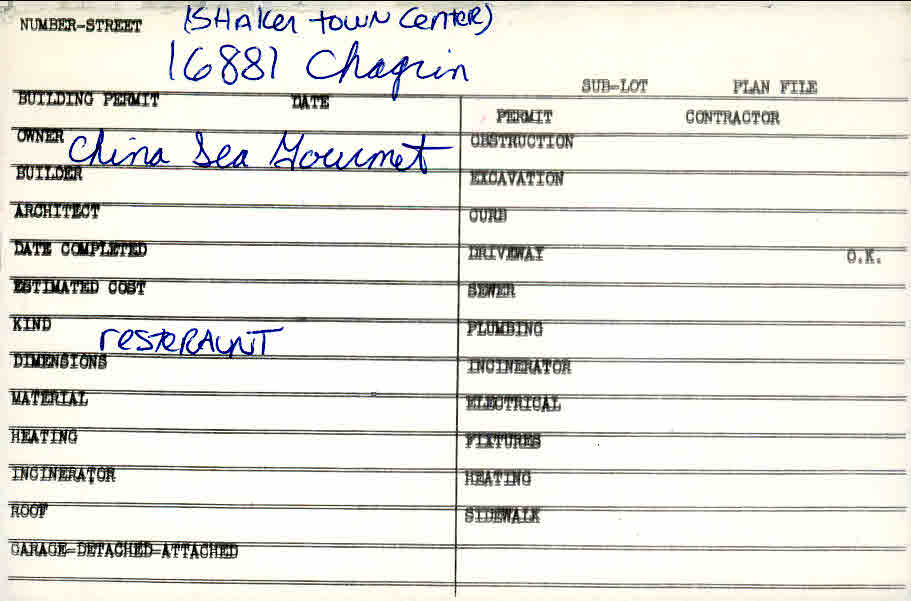 NUMBER-STREET (SHAKER TOWN CENTER)
16881 Chagrin
SUB-LOT PLAN FILE
BUILDING PERMIT DATE
PERMIT CONTRACTOR
OWNER China Sea Gourmet
OBSTRUCTION
BUILDER
EXCAVATION
ARCHITECT
CURB
DATE COMPLETED
DRIVEWAY O.K.
ESTIMATED COST
SEWER
KIND resteraunt
PLUMBING
DIMENSIONS
INCINERATOR
MATERIAL
ELECTRICAL
HEATING
FIXTURES
INCINERATOR
HEATING
ROOF
SIDEWALK
GARAGE-DETACHED-ATTACHED